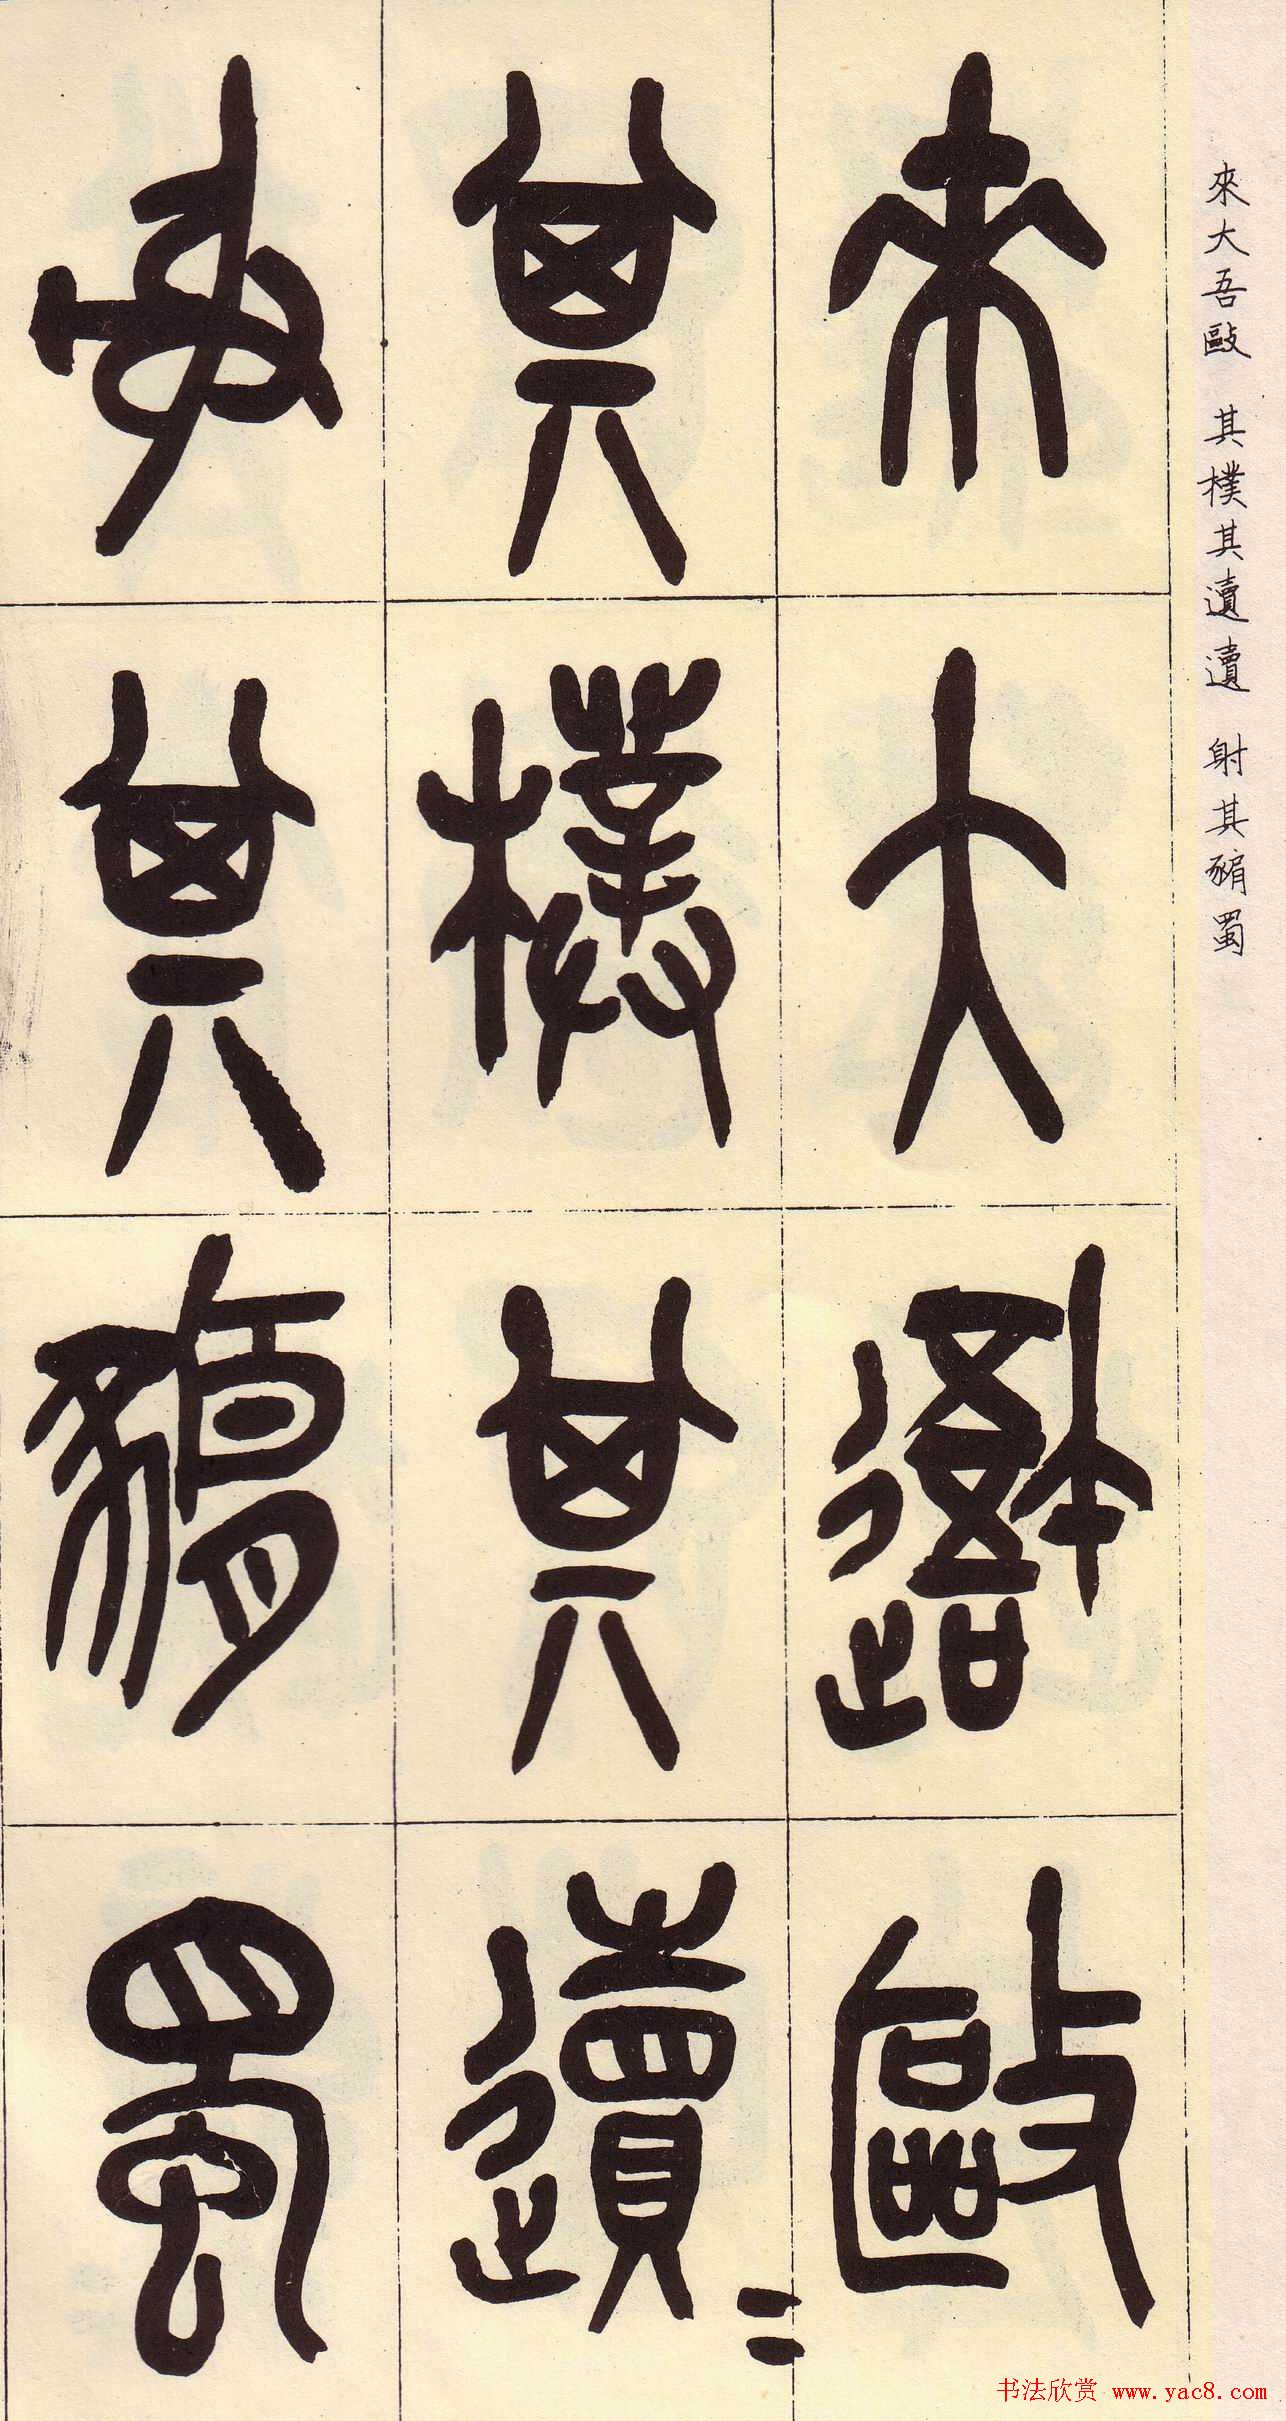 來大吾敺 其樸其遺遺 射其豜蜀
來大䢩敺
其樸其遺＝
射其豜蜀
书法欣赏 www.yac8.com